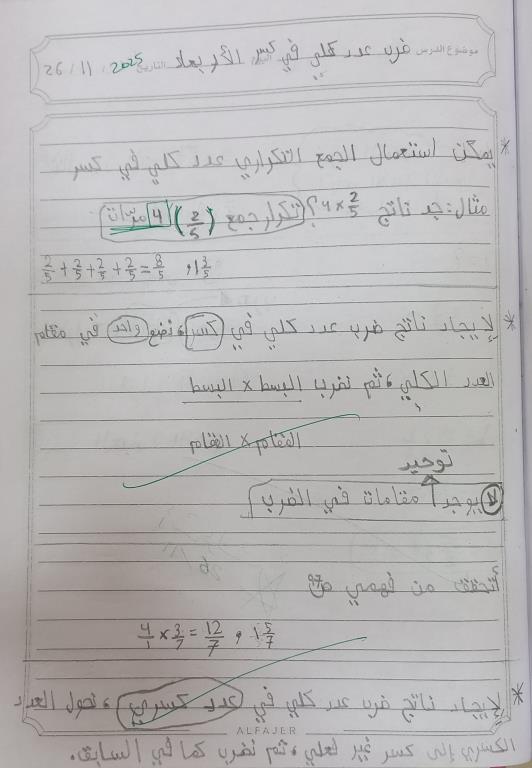 موضوع الدرس ضرب عدد كلي في كسر اليوم الأربعاء التاريخ 26 / 11 / 2025
* يمكن استعمال الجمع التكراري عدد كلي في كسر
مثال: جد ناتج 4 × 2/5 ؟ تكرار جمع (2/5) 4 مرّات
2/5 + 2/5 + 2/5 + 2/5 = 8/5 , 1 3/5
* لإيجاد ناتج ضرب عدد كلي في كسر، نضع واحد في مقام
العدد الكلي، ثم نضرب البسط × البسط
المقام × المقام
توحيد
لا يوجد مقامات في الضرب
أتحقق من فهمي ص
4/1 × 3/7 = 12/7 , 1 5/7
* لإيجاد ناتج ضرب عدد كلي في عدد كسري، نحول العدد
ALFAJER
الكسري إلى كسر غير فعلي، ثم نضرب كما في السابق.